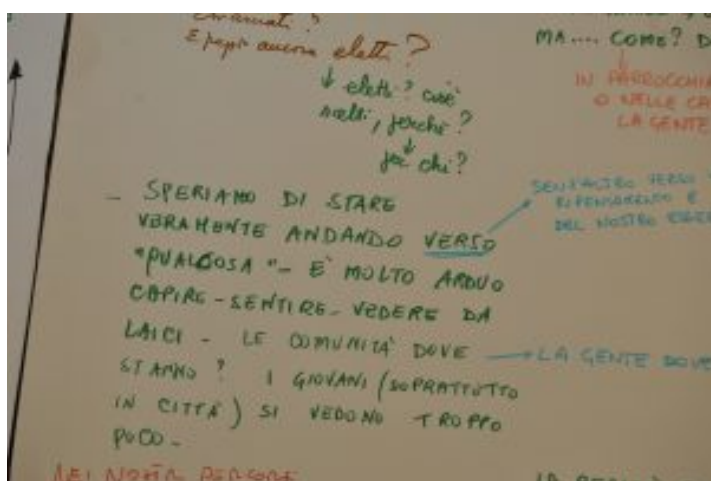 E popolo ancora eletti?
↓ eletti? cioè
scelti, perché?
↓
per chi?
MA.... COME? D
IN PARROCCHIA
O NELLE CA
LA GENTE
- SPERIAMO DI STARE
VERAMENTE ANDANDO VERSO
"QUALCOSA" - E' MOLTO ARDUO
CAPIRE - SENTIRE - VEDERE DA
LAICI - LE COMUNITÀ DOVE
STANNO? I GIOVANI (SOPRATTUTTO
IN CITTÀ) SI VEDONO TROPPO
POCO -
SENZ'ALTRO VERSO
RIPENSAMENTO E
DEL NOSTRO ESSER
LA GENTE DOVE